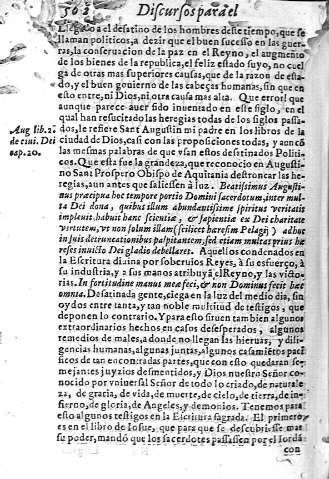 562 Discursos para el
Llegado a el desatino de los hombres deste tiempo, que se
llaman politicos, a dezir que el buen sucesso en las guer-
ras, la conseruacion de la paz en el Reyno, el augmento
de los bienes de la republica, el feliz estado suyo, no cuel
ga de otras mas superiores causas, que de la razon de esta-
do, y el buen gouierno de las cabeças humanas, sin que en
esto entre, ni Dios, ni otra causa mas alta. Que error! que
aunque parece auer sido inuentado en este siglo, en el
qual han resucitado las heregias todas de los siglos passa-
dos, le refiere Sant Augustin mi padre en los libros de la
Aug lib. 2.
de ciui. Dei
cap. 20.
ciudad de Dios, casi con las proposiciones todas, y aun cõ
las mesmas palabras de que vsan estos desatinados Politi-
cos. Que esta fue la grandeza, que reconocio en Augusti-
no Sant Prospero Obispo de Aquitania destroncar las he-
regias, aun antes que saliessen à luz. Beatissimus Augusti-
nus præcipua hoc tempore portio Domini sacerdotum, inter mul-
ta Dei dona, quibus illum abundantissime spiritus veritatis
impleuit, habuit hanc scientiæ, & sapientiæ ex Dei charitate
virtutem, vt non solum illam (scilicet haresim Pelagij) adhuc
in suis detruncationibus palpitantem, sed etiam multas prius hæ
reses inuicto Dei gladio debellaret. Aquellos condenados en
la Escritura diuina por soberuios Reyes, à su esfuerço, à
su industria, y a sus manos atribuyã el Reyno, y las victo-
rias. In fortitudine manus meæ feci, & non Dominus fecit hæc
omnia. Desatinada gente, ciega en la luz del medio dia, sin
oydos entre tanta, y tan noble multitud de testigos, que
deponen lo contrario. Y para esto siruen tambien algunos
extraordinarios hechos en casos desesperados, algunos
remedios de males, a donde no llegan las hieruas, y dili-
gencias humanas, algunas juntas, algunos casamiẽtos paci
ficos de tan encontradas partes, que con esso quedaran se-
mejantes juyzios desmentidos, y Dios nuestro Señor co-
nocido por vniuersal Señor de todo lo criado, de naturale
za, de gracia, de vida, de muerte, de cielo, de tierra, de in-
fierno, de gloria, de Angeles, y demonios. Tenemos para
esto algunos testigos en la Escritura sagrada. El primero
es en el libro de Iosue, que para que se descubriesse mas
su poder, mandó que los sacerdotes passassen por el Iordã
con